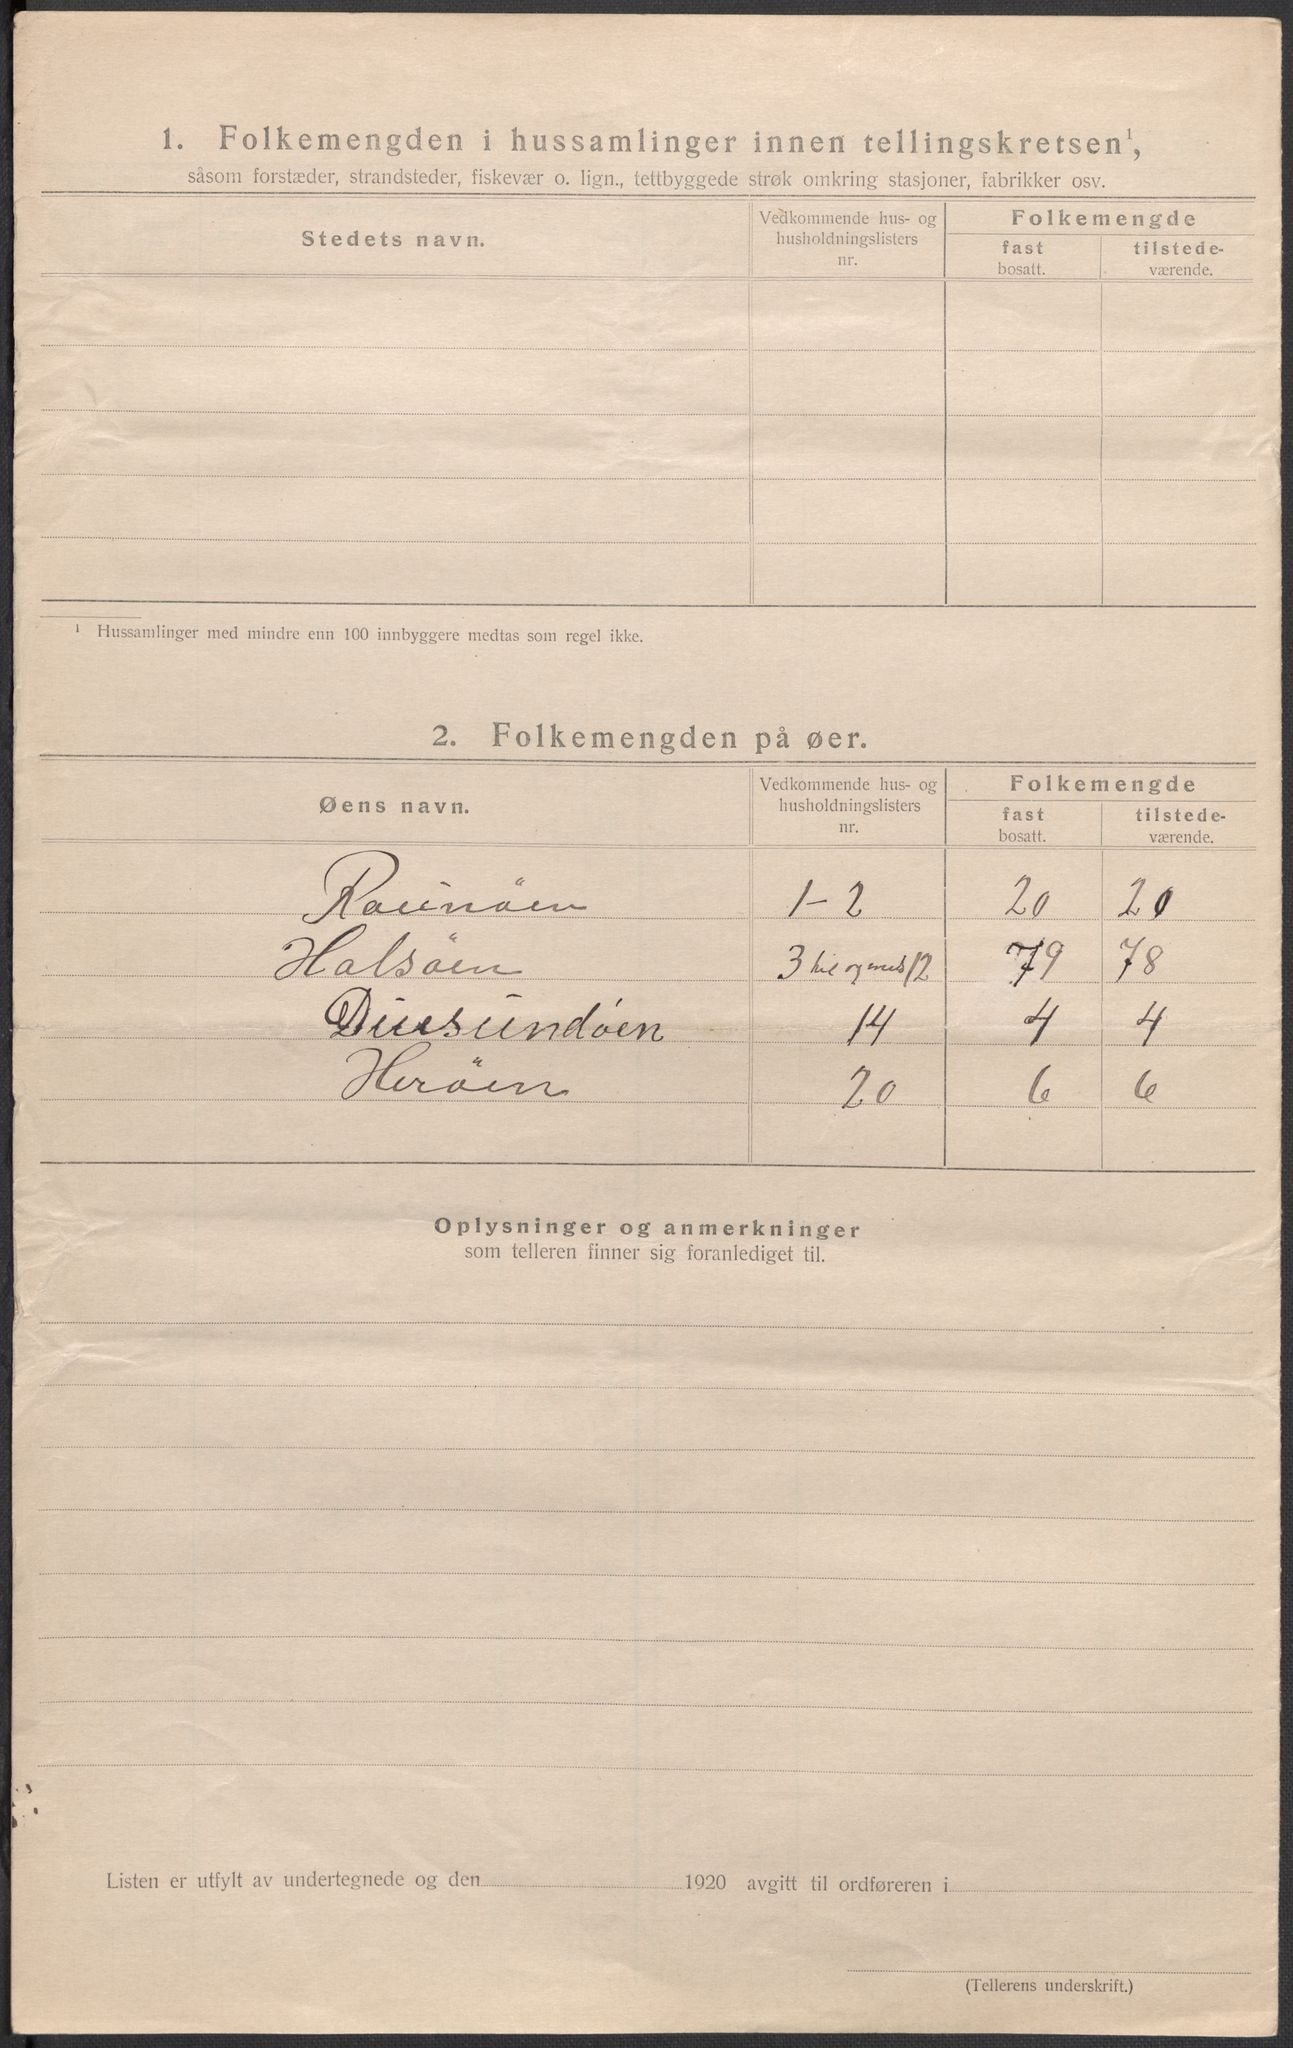 1. Folkemengden i hussamlinger innen tellingskretsen¹,
såsom forstæder, strandsteder, fiskevær o. lign., tettbyggede strøk omkring stasjoner, fabrikker osv.
Stedets navn.
Vedkommende hus- og
husholdningslisters
nr.
Folkemengde
fast
bosatt.
tilstede-
værende.
¹ Hussamlinger med mindre enn 100 innbyggere medtas som regel ikke.
2. Folkemengden på øer.
Øens navn.
Vedkommende hus- og
husholdningslisters
nr.
Folkemengde
fast
bosatt.
tilstede-
værende.
Raunöen 1-2 20 20
Halsöen 3 til og med 12 79 78
14 4 4
Heröen 20 6 6
Oplysninger og anmerkninger
som telleren finner sig foranlediget til.
Listen er utfylt av undertegnede og den 1920 avgitt til ordføreren i
(Tellerens underskrift.)